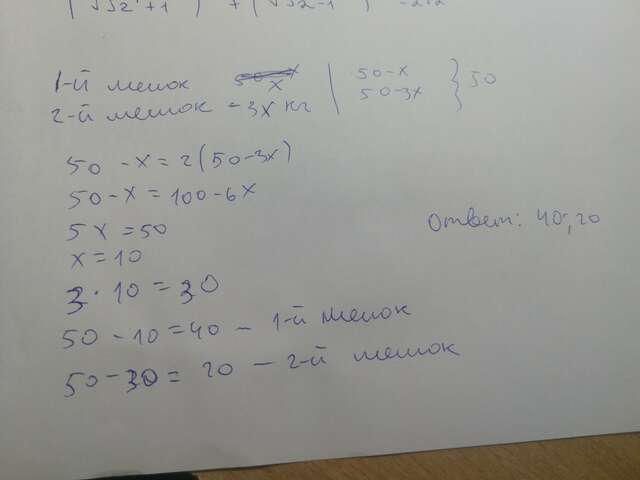 1-й мешок x | 50-x } 50
2-й мешок - 3x кг | 50-3x
50 - x = 2(50-3x)
50 - x = 100 - 6x
5x = 50
x = 10
Ответ: 40; 20
3 · 10 = 30
50 - 10 = 40 - 1-й мешок
50 - 30 = 20 - 2-й мешок